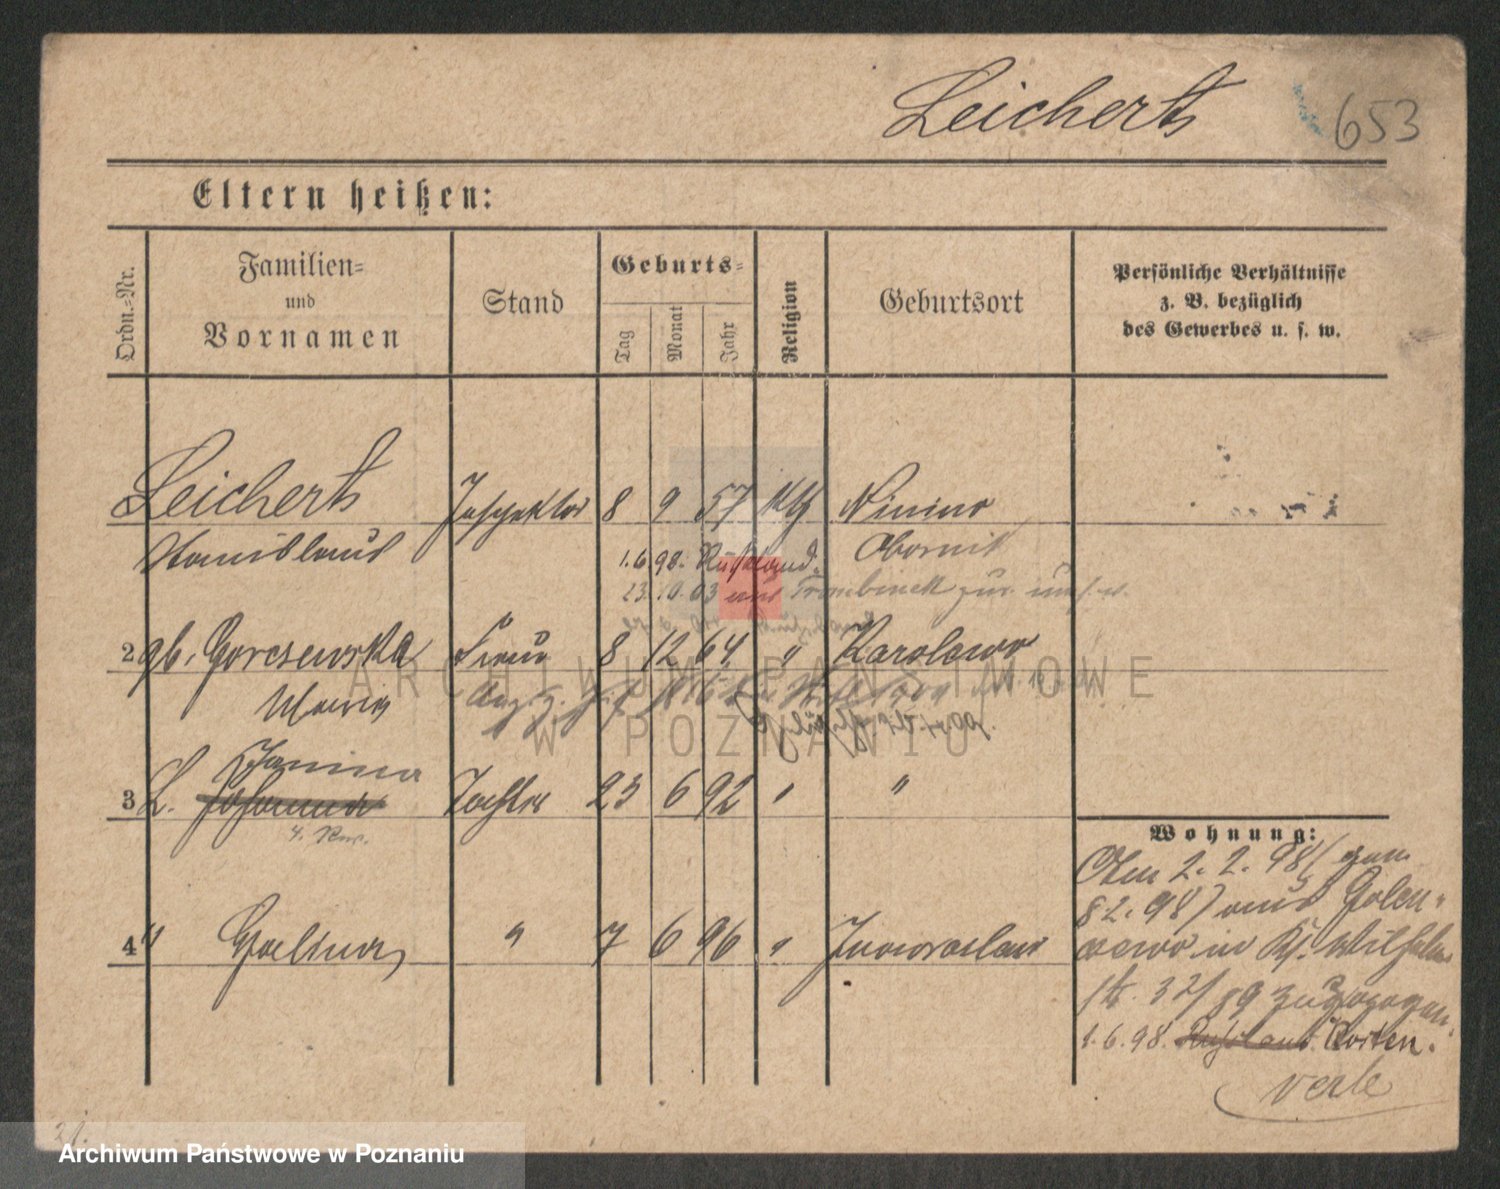 Leichert
653
Eltern heißen:
Ordn.=Nr.
Familien=
und
Vornamen
Stand
Geburts=
Tag
Monat
Jahr
Religion
Geburtsort
Persönliche Verhältnisse
z. B. bezüglich
des Gewerbes u. s. w.
Leichert Inspektor 8 9 57 kth Ninino
Stanislaus Obornik
1.6.98. Rußland.
23.10.03 aus
2 gb. Gorczewska Frau 8 12 64 " Karolewo
Maria
Janina
3 L. Johanna Tochter 23 6 92 " "
4 " Halina " 7 6 96 " Inowrazlaw
Wohnung:
2. 2. 98
8 2. 98 aus Golen-
in Kl. Wilhelm
str. 32 zugezogen
1.6.98. Rußland Posten.
verte
ARCHIWUM PAŃSTWOWE
W POZNANIU
Archiwum Państwowe w Poznaniu